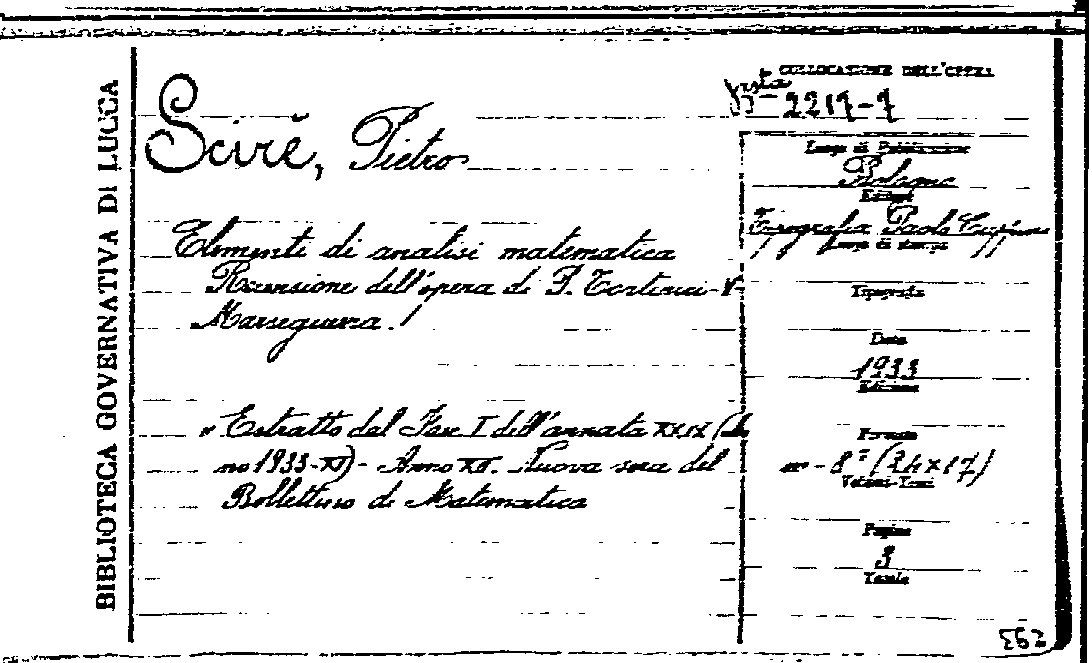 BIBLIOTECA GOVERNATIVA DI LUCCA
COLLOCAZIONE DELL'OPERA
Busta 2217-7
Scirè, Pietro
Elementi di analisi matematica
Recensione dell'opera di P. Tortorici-V.
Marseguerra.
"Estratto dal Fasc I dell'annata XXIX (
no 1933-XI) - Anno XII. Nuova serie del
Bollettino di Matematica
Luogo di Pubblicazione
Bologna
Editore
Tipografia Paolo Cuppini
Luogo di stampa
Tipografia
Data
1933
Edizione
Formato
in - 8° (24x17)
Volumi-Tomi
Pagine
3
Tavole